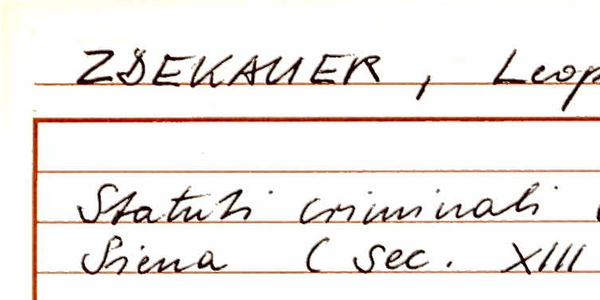 ZDEKAUER, Leop
Statuti criminali
Siena (sec. XIII